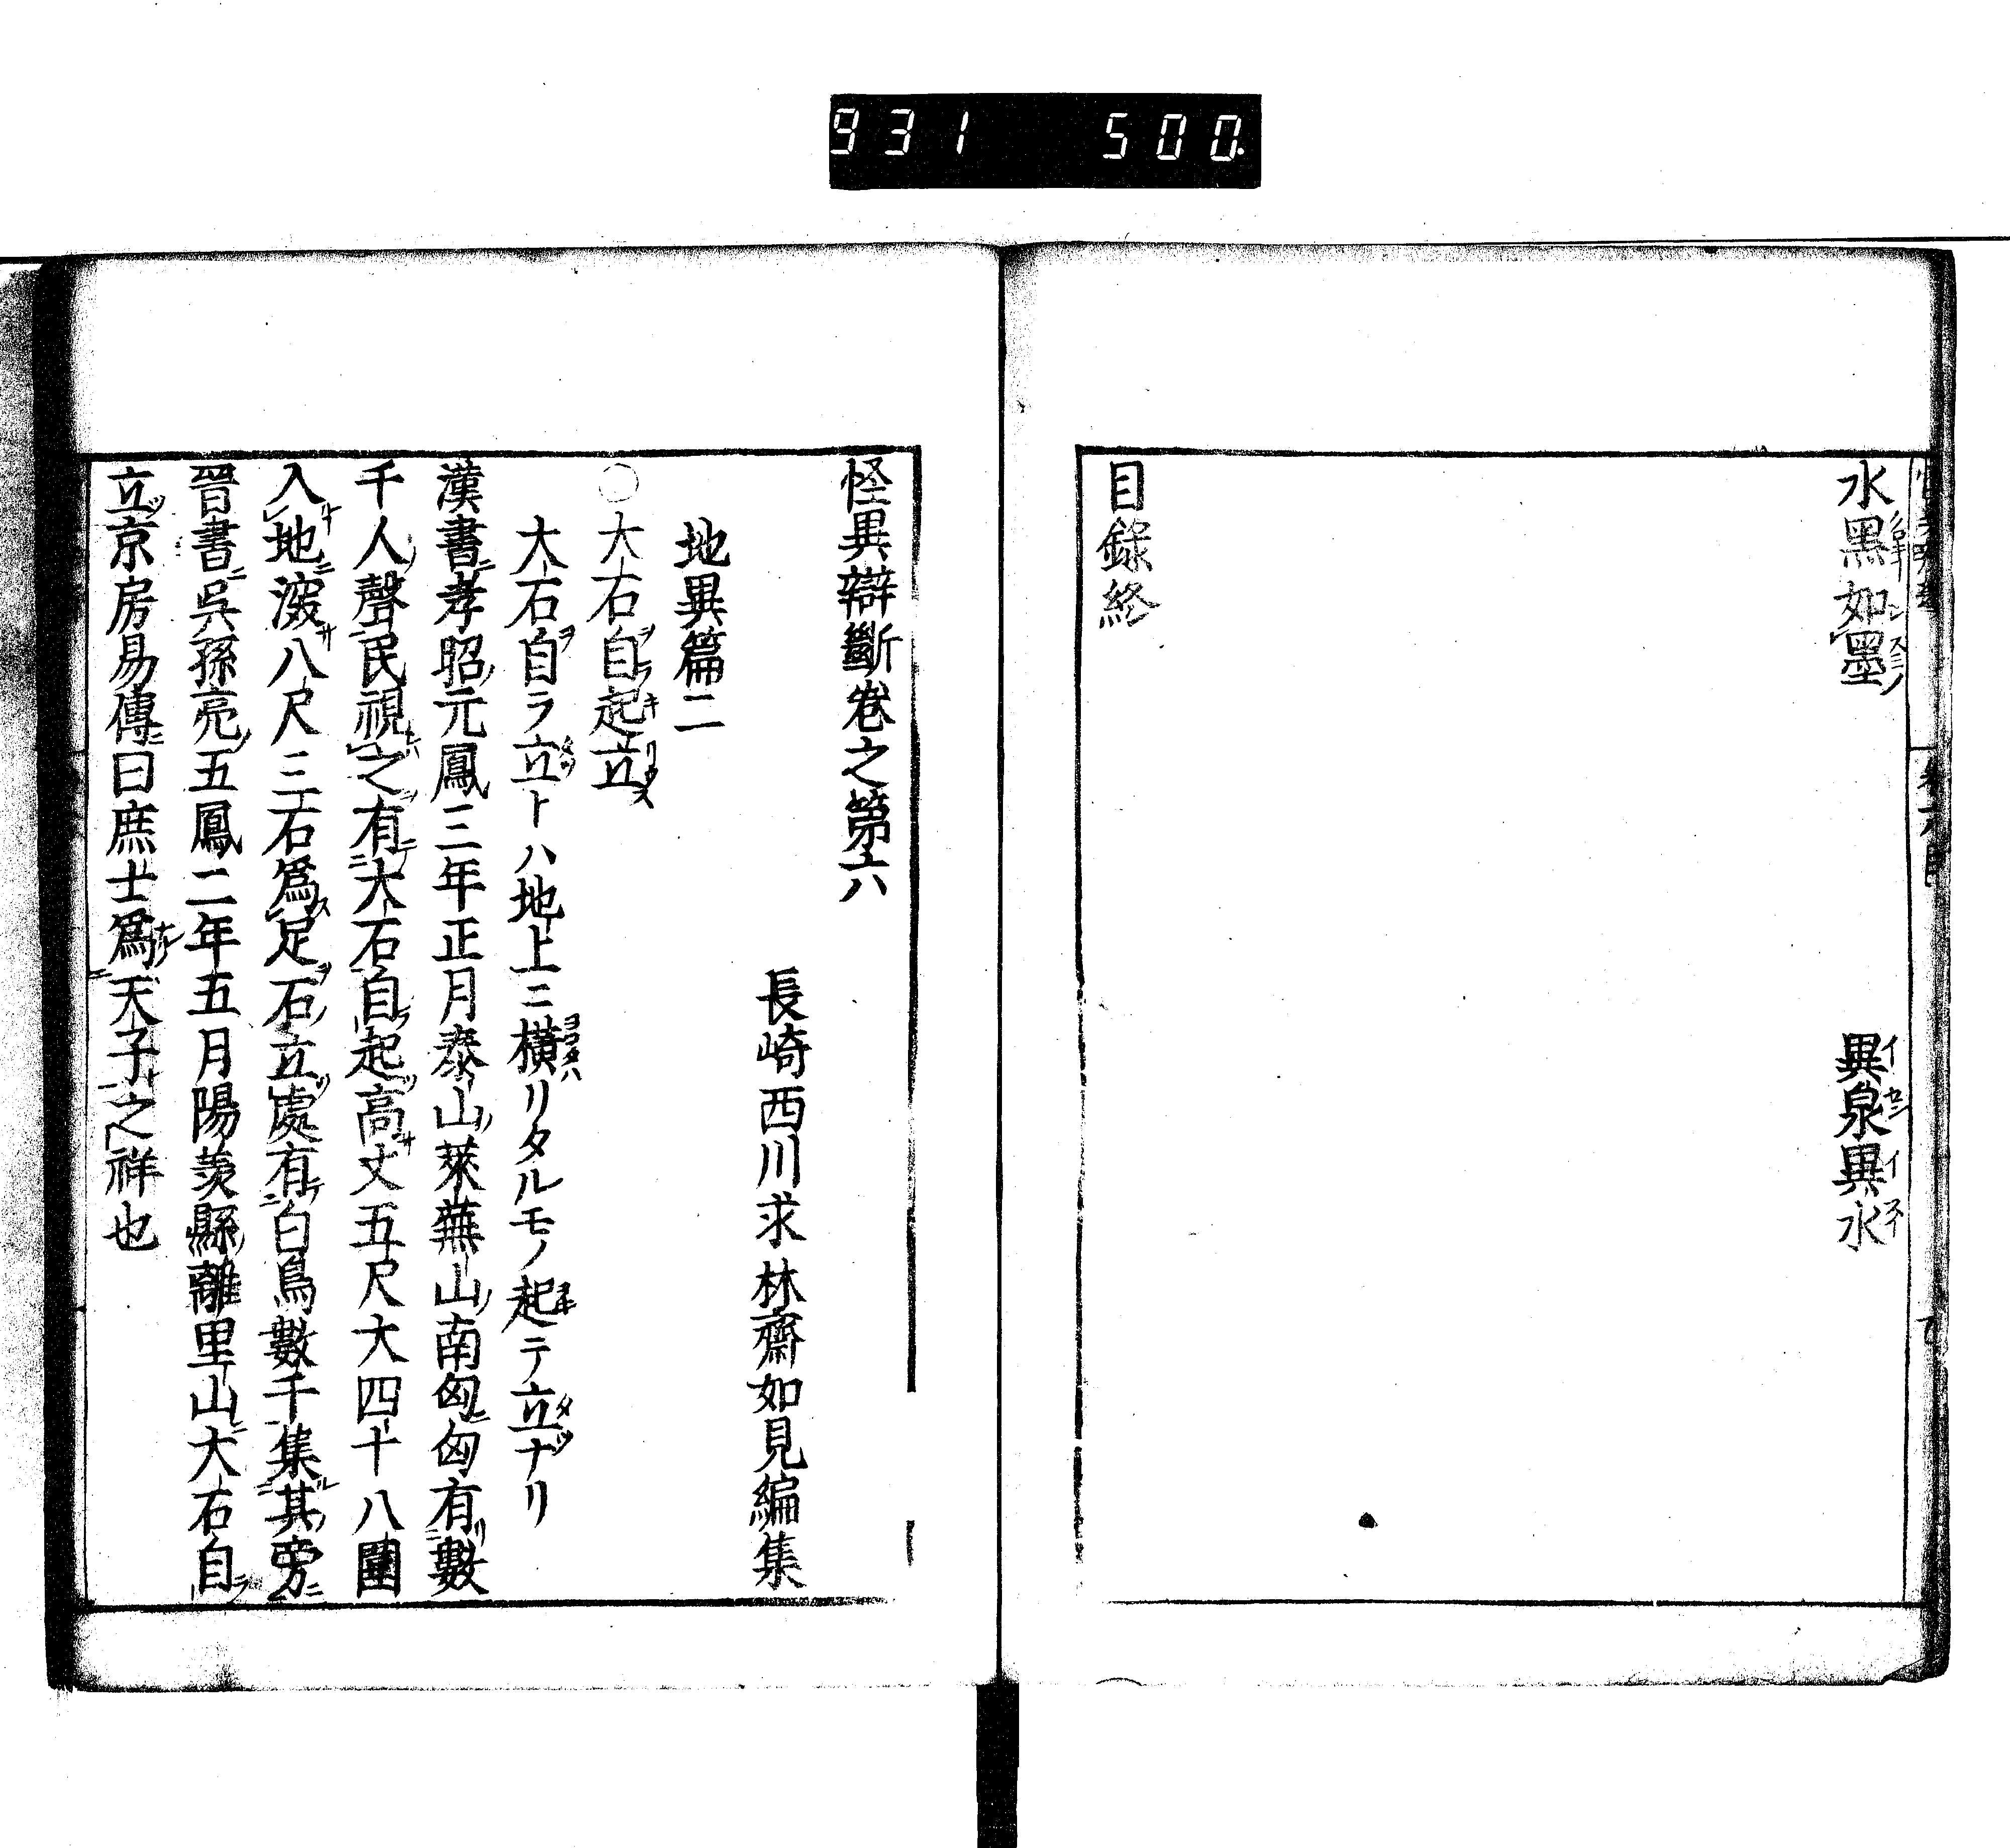 931 500
水黑如墨 異泉異水
目錄終
怪異辯斷卷之第六
長崎西川求林齋如見編集
地異篇二
○大石自起立
大石自ラ立トハ地上ニ橫リタルモノ起テ立ナリ
漢書孝昭元鳳三年正月泰山萊蕪山南匈匈有數
千人聲民視之有大石自起高丈五尺大四十八圍
入地深八尺三石爲足石立處有白烏數千集其旁
晉書吳孫亮五鳳二年五月陽羨縣離里山大石自
立京房易傳曰庶士爲天子之祥也